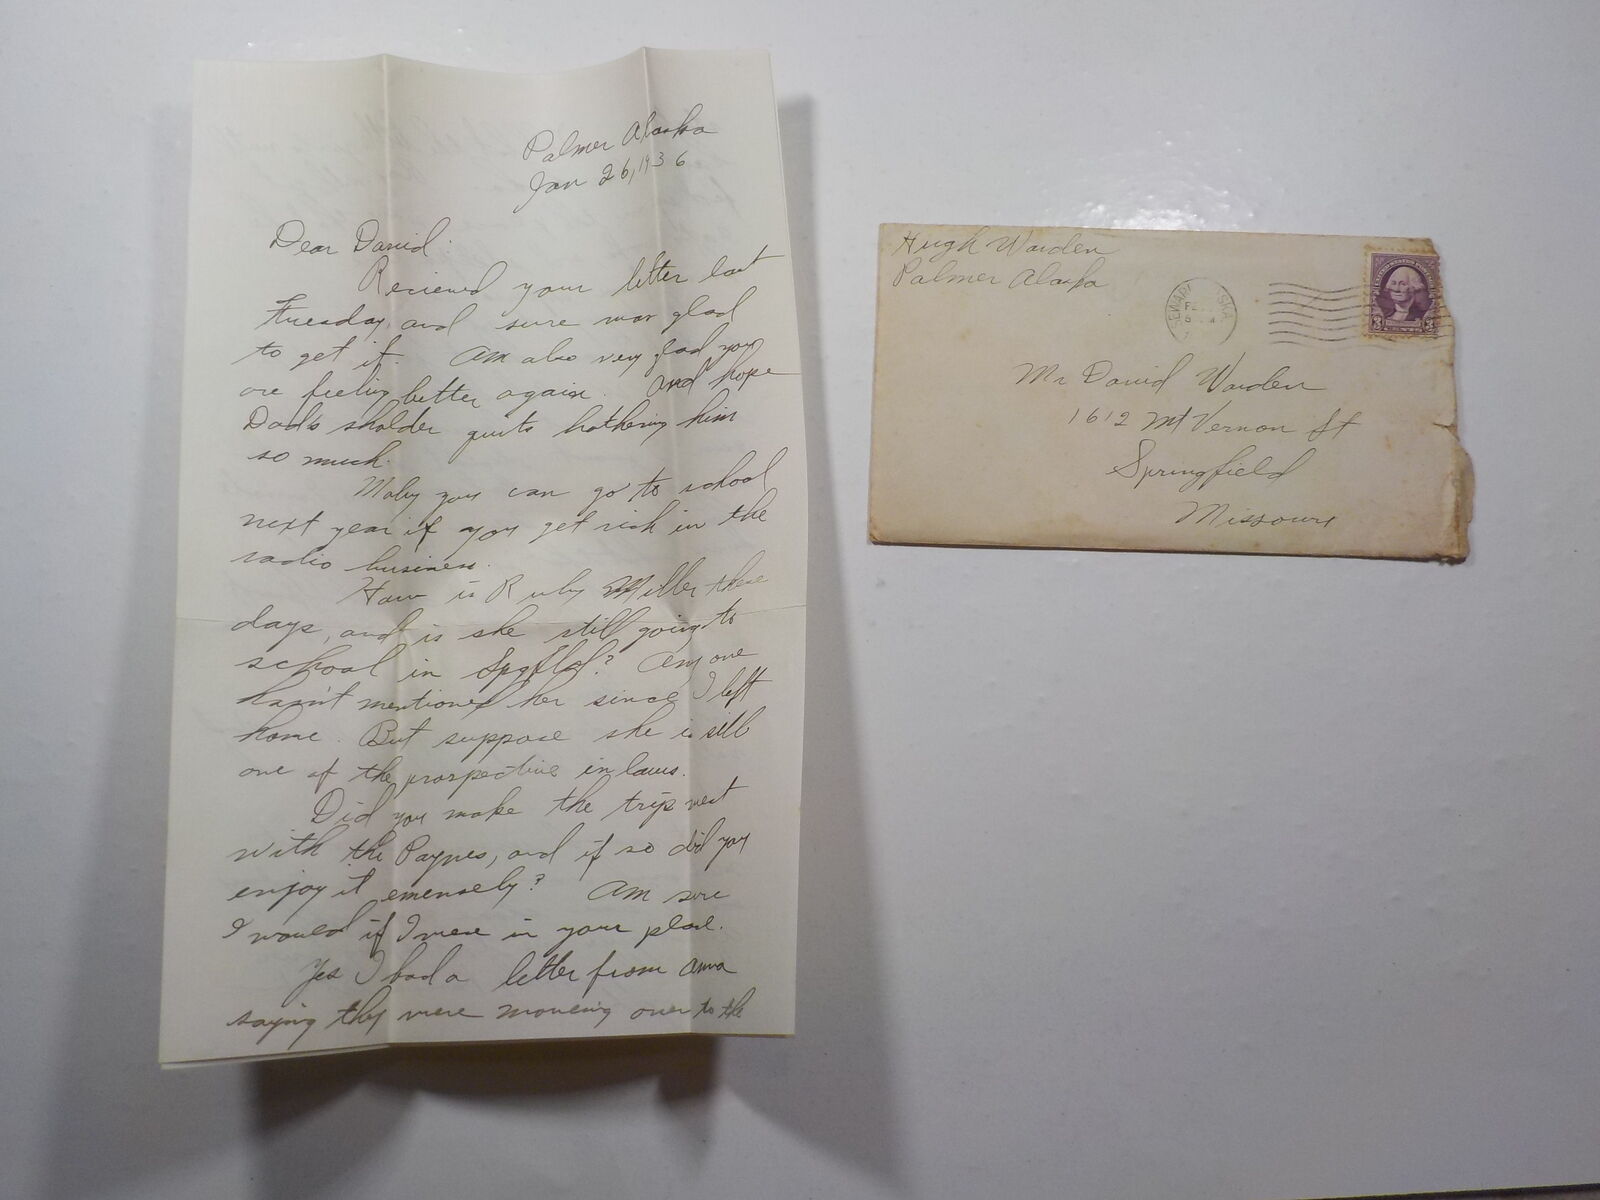 Palmer Alaska
Jan 26, 1936
Dear David:
Recieved your letter last
Tuesday, and sure was glad
to get it. Am also very glad you
are feeling better again. And hope
Dad's sholder quits bothering him
so much.
Maby you can go to school
next year if you get rich in the
radio business.
How is Ruby Miller these
days, and is she still going to
school in Spgfld? Any one
hasn't mentioned her since I left
home. But suppose she is still
one of the prospective in laws.
Did you make the trip west
with the Paynes, and if so did you
enjoy it emensely? Am sure
I would if I were in your place.
Yes I had a letter from Anna
saying they were moveing over to the
Hugh Warden
Palmer Alaska
SEWARD
FEB
3 3
Mr David Warden
1612 Mt Vernon St
Springfield
Missouri